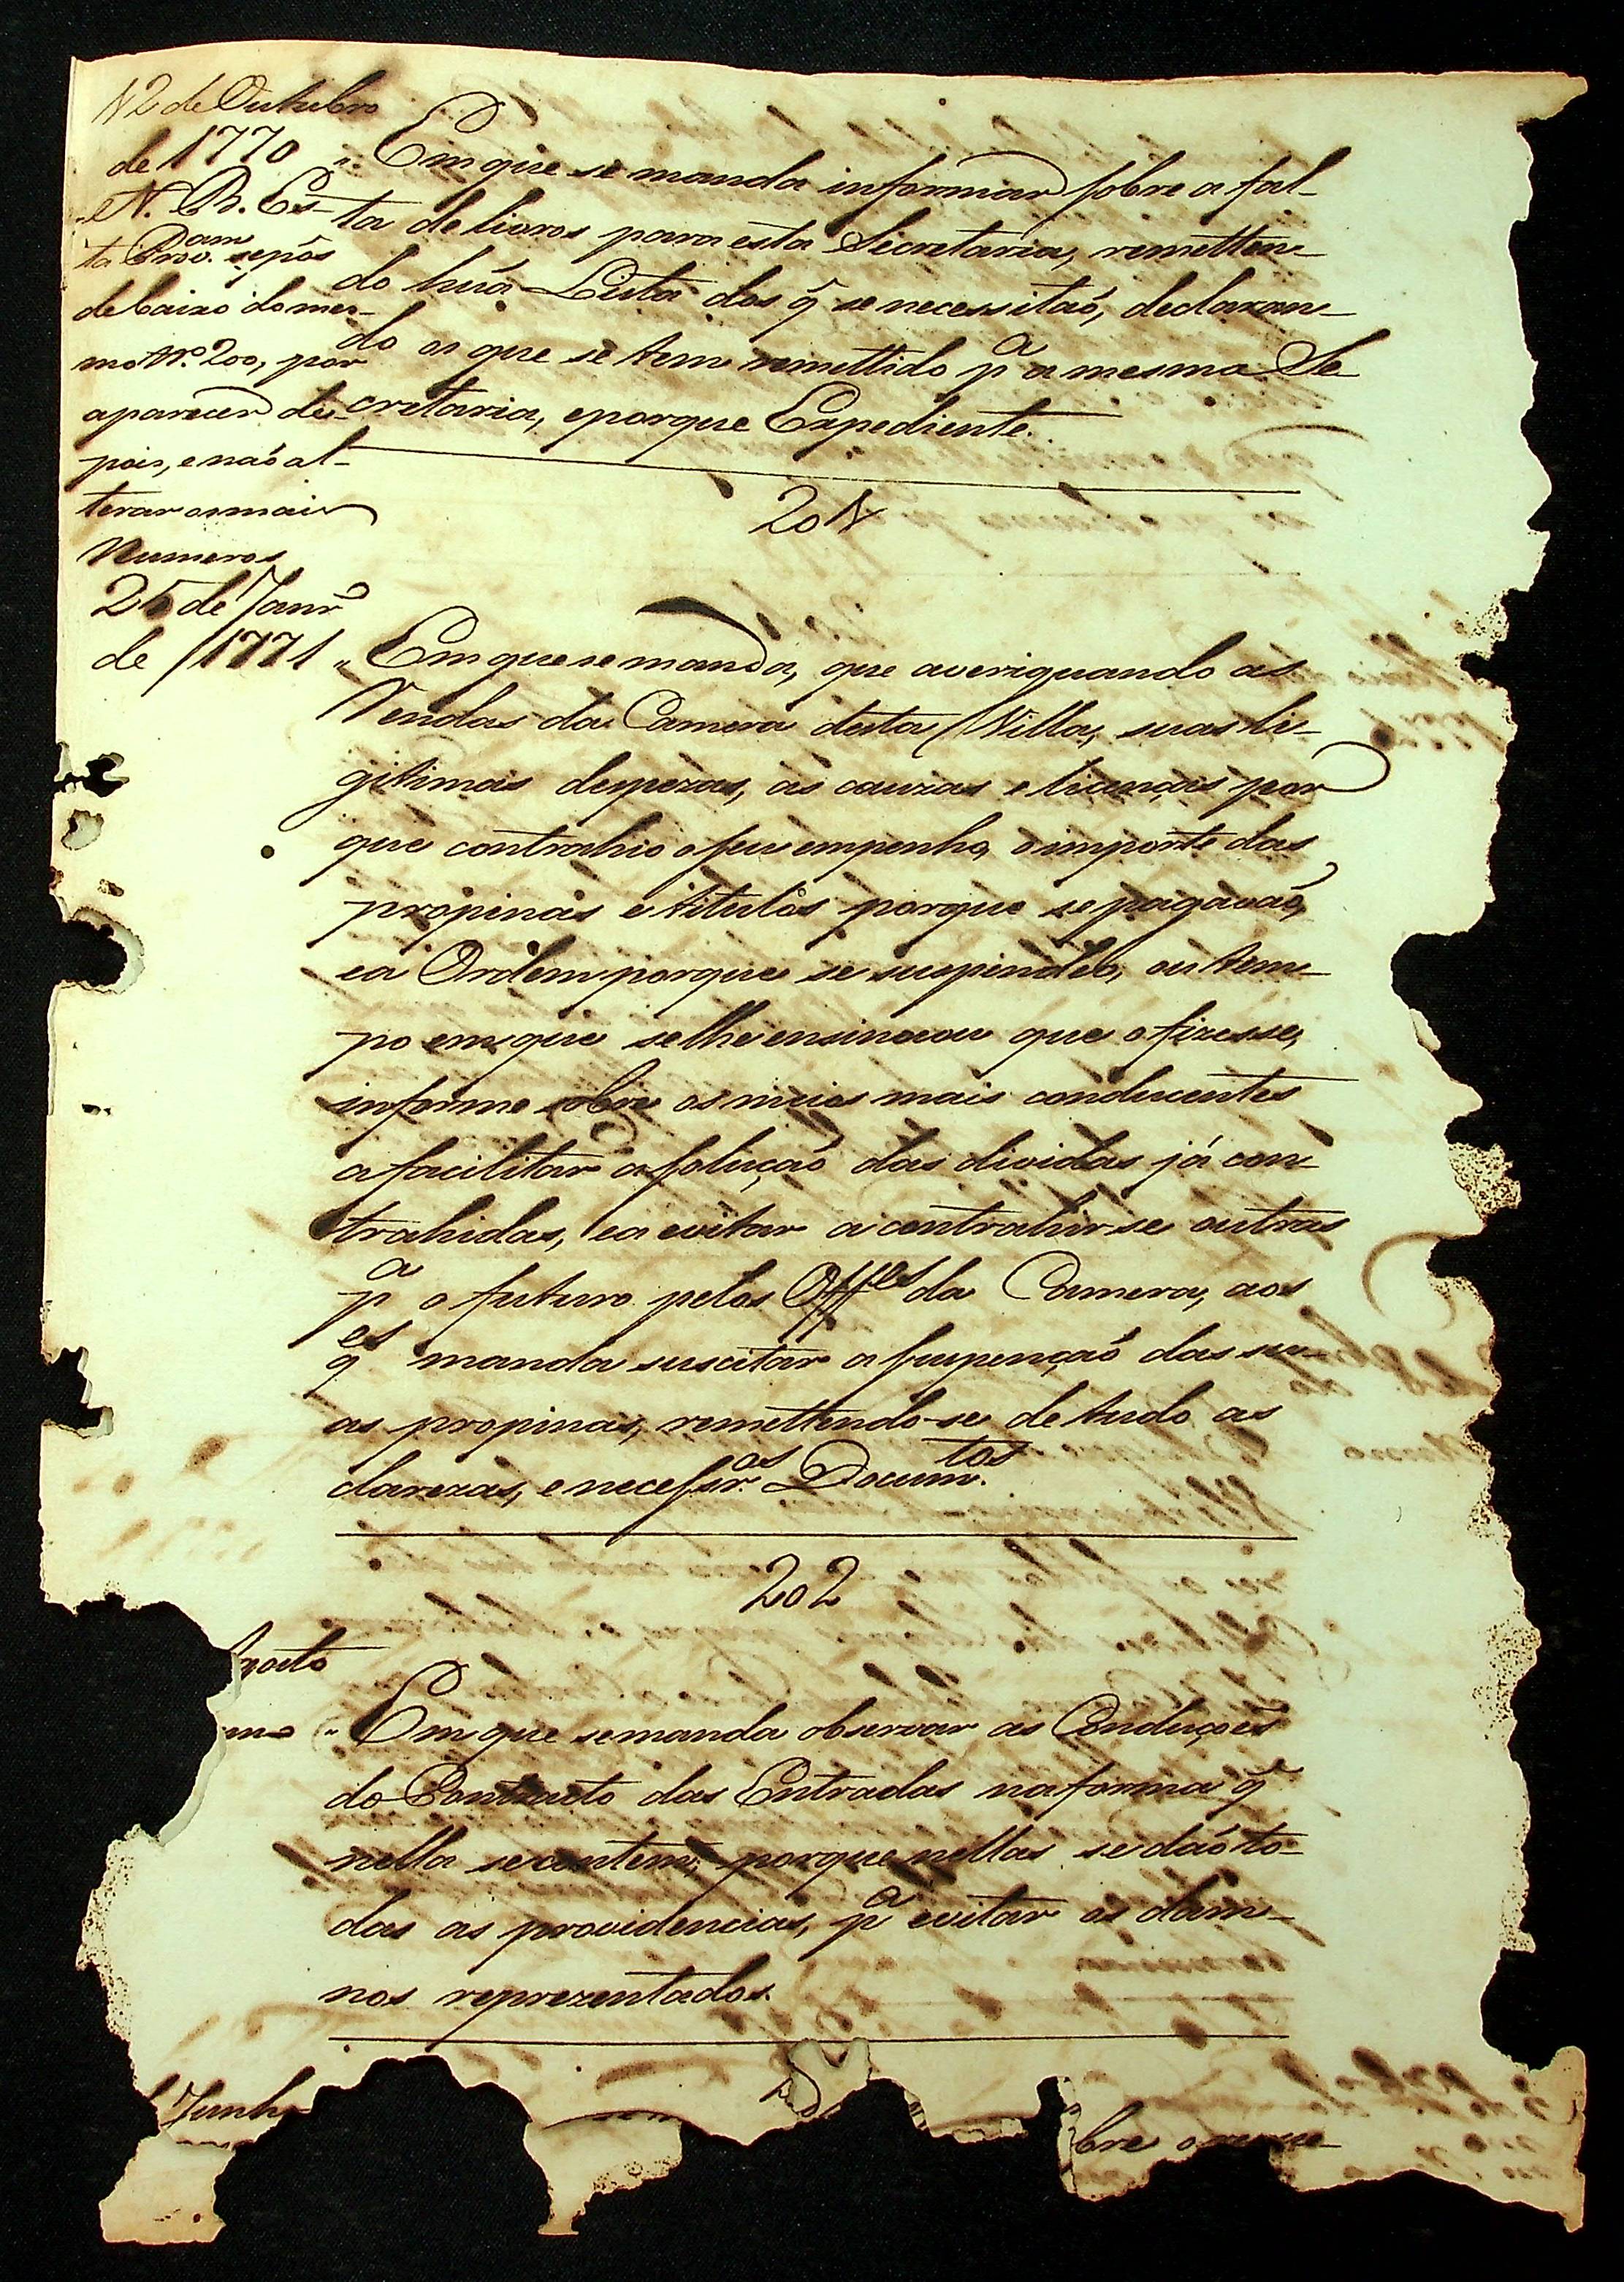 12 de Outubro
de 1770
N. B. Es-
ta Prov.am se pôs
debaixo do mes-
mo Nº. 200, por
aparecer de-
pois, e naõ al-
terar os mais
Numeros
" Em que se manda informar sobre a fal-
ta de livros para esta Secretaria, remetten-
do huã Lista dos q̃ se necessitaõ, declaran-
do os que se tem remettido pª a mesma Se-
cretaria, e porque Expediente.
201
25 de Janrº
de 1771
" Em que se manda, que averiguando as
Rendas da Camera desta Villa, suas li-
gitimas despezas, as cauzas e licenças por
que contrahio o seu empenho, o importe das
propinas e titulos porque se pagavaõ,
e a Ordem porque se suspendeo, ou tem-
po em que se lhe ensinuou que o fizesse,
informe sobre os meios mais conducentes
a facilitar a soluçaõ das dividas já con-
trahidas, e a evitar a contrahir se outras
pª o futuro pelos Offes da Camera, aos
qes manda suscitar a suspençaõ das su-
as propinas, remettendo-se de tudo as
clarezas, e necessr.os Docum.tos
202
Agosto
mo
" Em que se manda observar as Condiçoẽs
do Contracto das Entradas na forma q̃
nella se contem, porque nellas se daõ to-
das as providencias, pª evitar os dam-
nos reprezentados.
Junho
bre o reque-